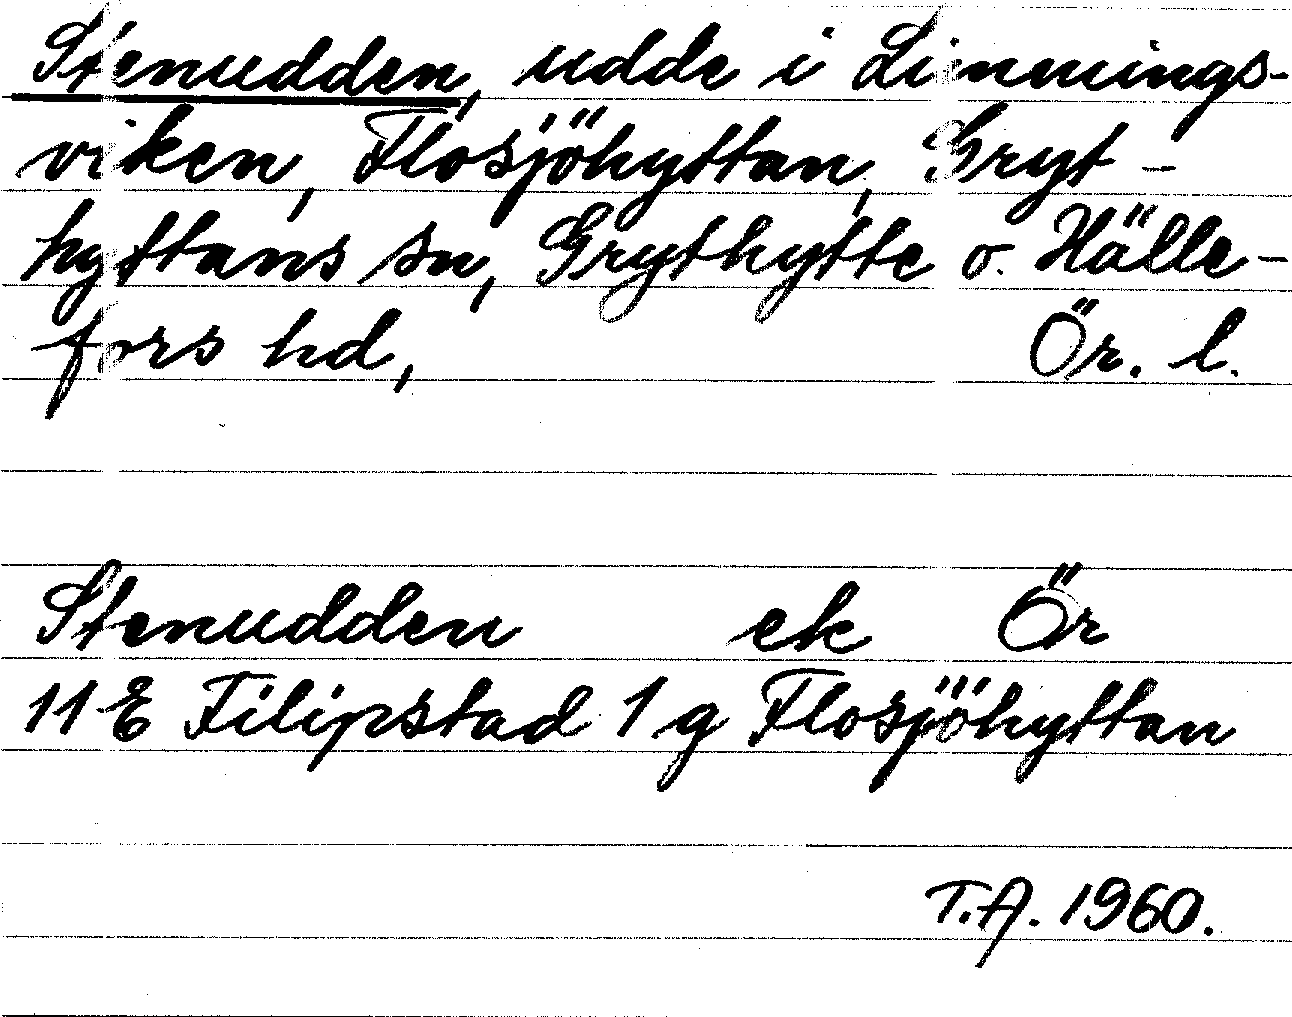 Stenudden, udde i Limmings-
viken, Flosjöhyttan, Gryt-
hyttans sn, Grythytte o. Hälle-
fors hd, Ör. l.
Stenudden ek Ör
11 E Filipstad 1 g Flosjöhyttan
T.A. 1960.